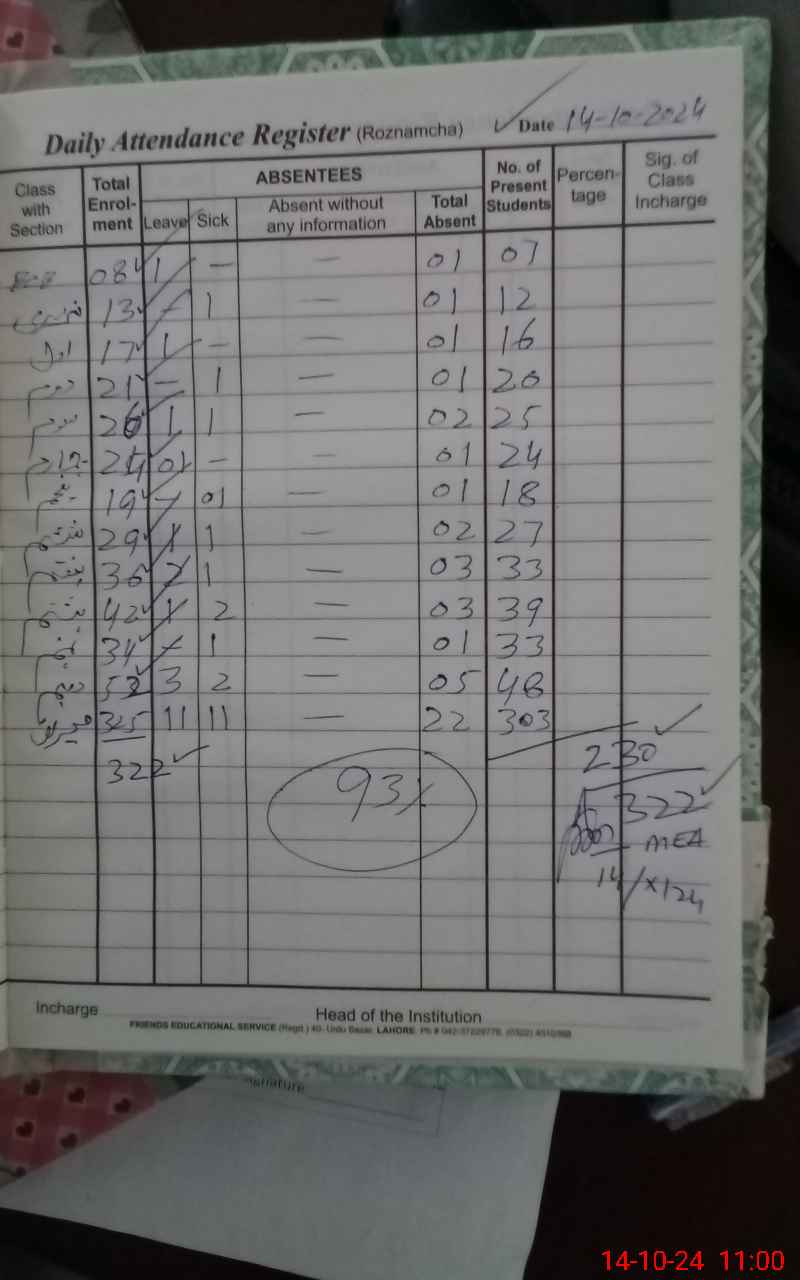 Daily Attendance Register (Roznamcha) Date 14-10-2024
Class with Section Total Enrol-ment ABSENTEES No. of Present Students Percen-tage Sig. of Class Incharge
Leave Sick Absent without any information Total Absent
08 1 — — 01 07
نرسری 13 — 1 — 01 12
اول 17 1 — — 01 16
دوم 21 — 1 — 01 20
سوم 26 1 1 — 02 25
چہارم 24 01 — — 01 24
پنجم 19 — 01 — 01 18
ششم 29 1 1 — 02 27
ہفتم 36 2 1 — 03 33
ہشتم 42 1 2 — 03 39
نہم 34 — 1 — 01 33
دہم 3 2 — 05 48
میزان 325 11 11 — 22 303
322 230
93% 322
MEA
14/X/24
Incharge Head of the Institution
FRIENDS EDUCATIONAL SERVICE (Regd.) 40- Urdu Bazar, LAHORE.
14-10-24 11:00